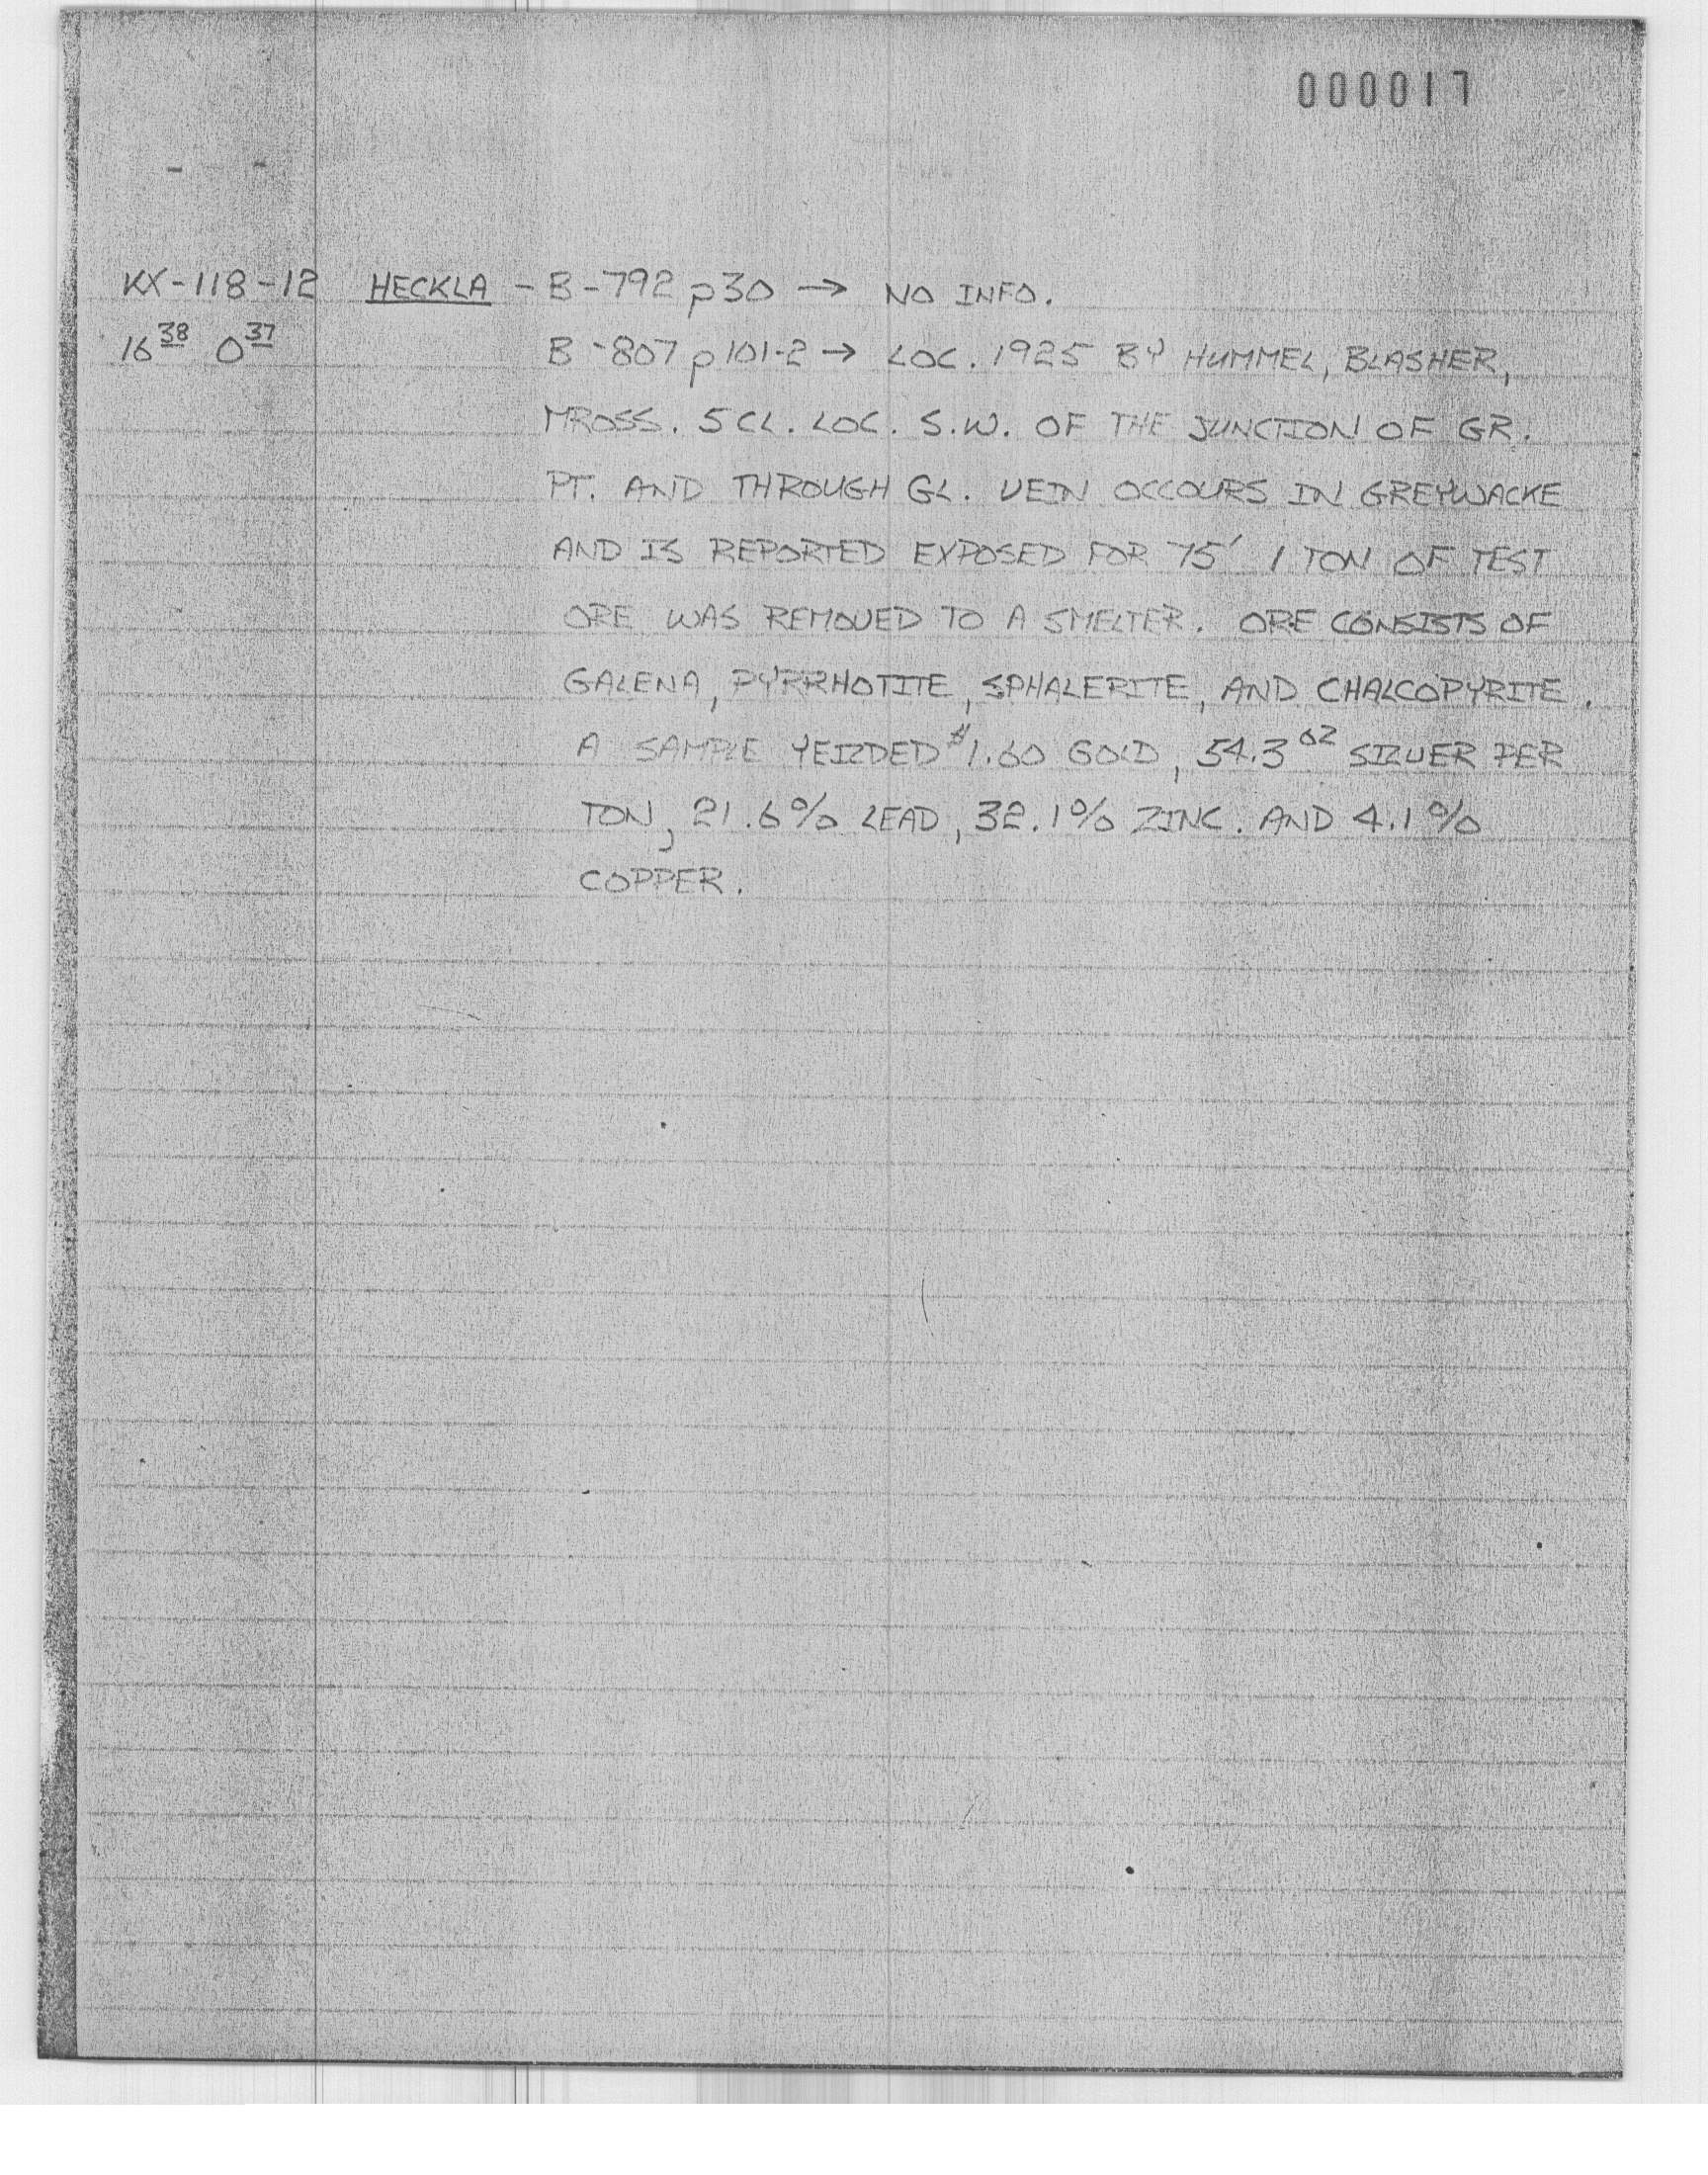 000017
KX-118-12 HECKLA - B-792 p30 → NO INFO.
16 38 0 37 B-807 p101-2 → LOC. 1925 BY HUMMEL, BLASHER,
MROSS. 5 CL. LOC. S.W. OF THE JUNCTION OF GR.
PT. AND THROUGH GL. VEIN OCCOURS IN GREYWACKE
AND IS REPORTED EXPOSED FOR 75' 1 TON OF TEST
ORE WAS REMOVED TO A SMELTER. ORE CONSISTS OF
GALENA, PYRRHOTITE, SPHALERITE, AND CHALCOPYRITE.
A SAMPLE YEILDED $1.60 GOLD, 54.3 oz SILVER PER
TON, 21.6% LEAD, 32.1% ZINC. AND 4.1%
COPPER.